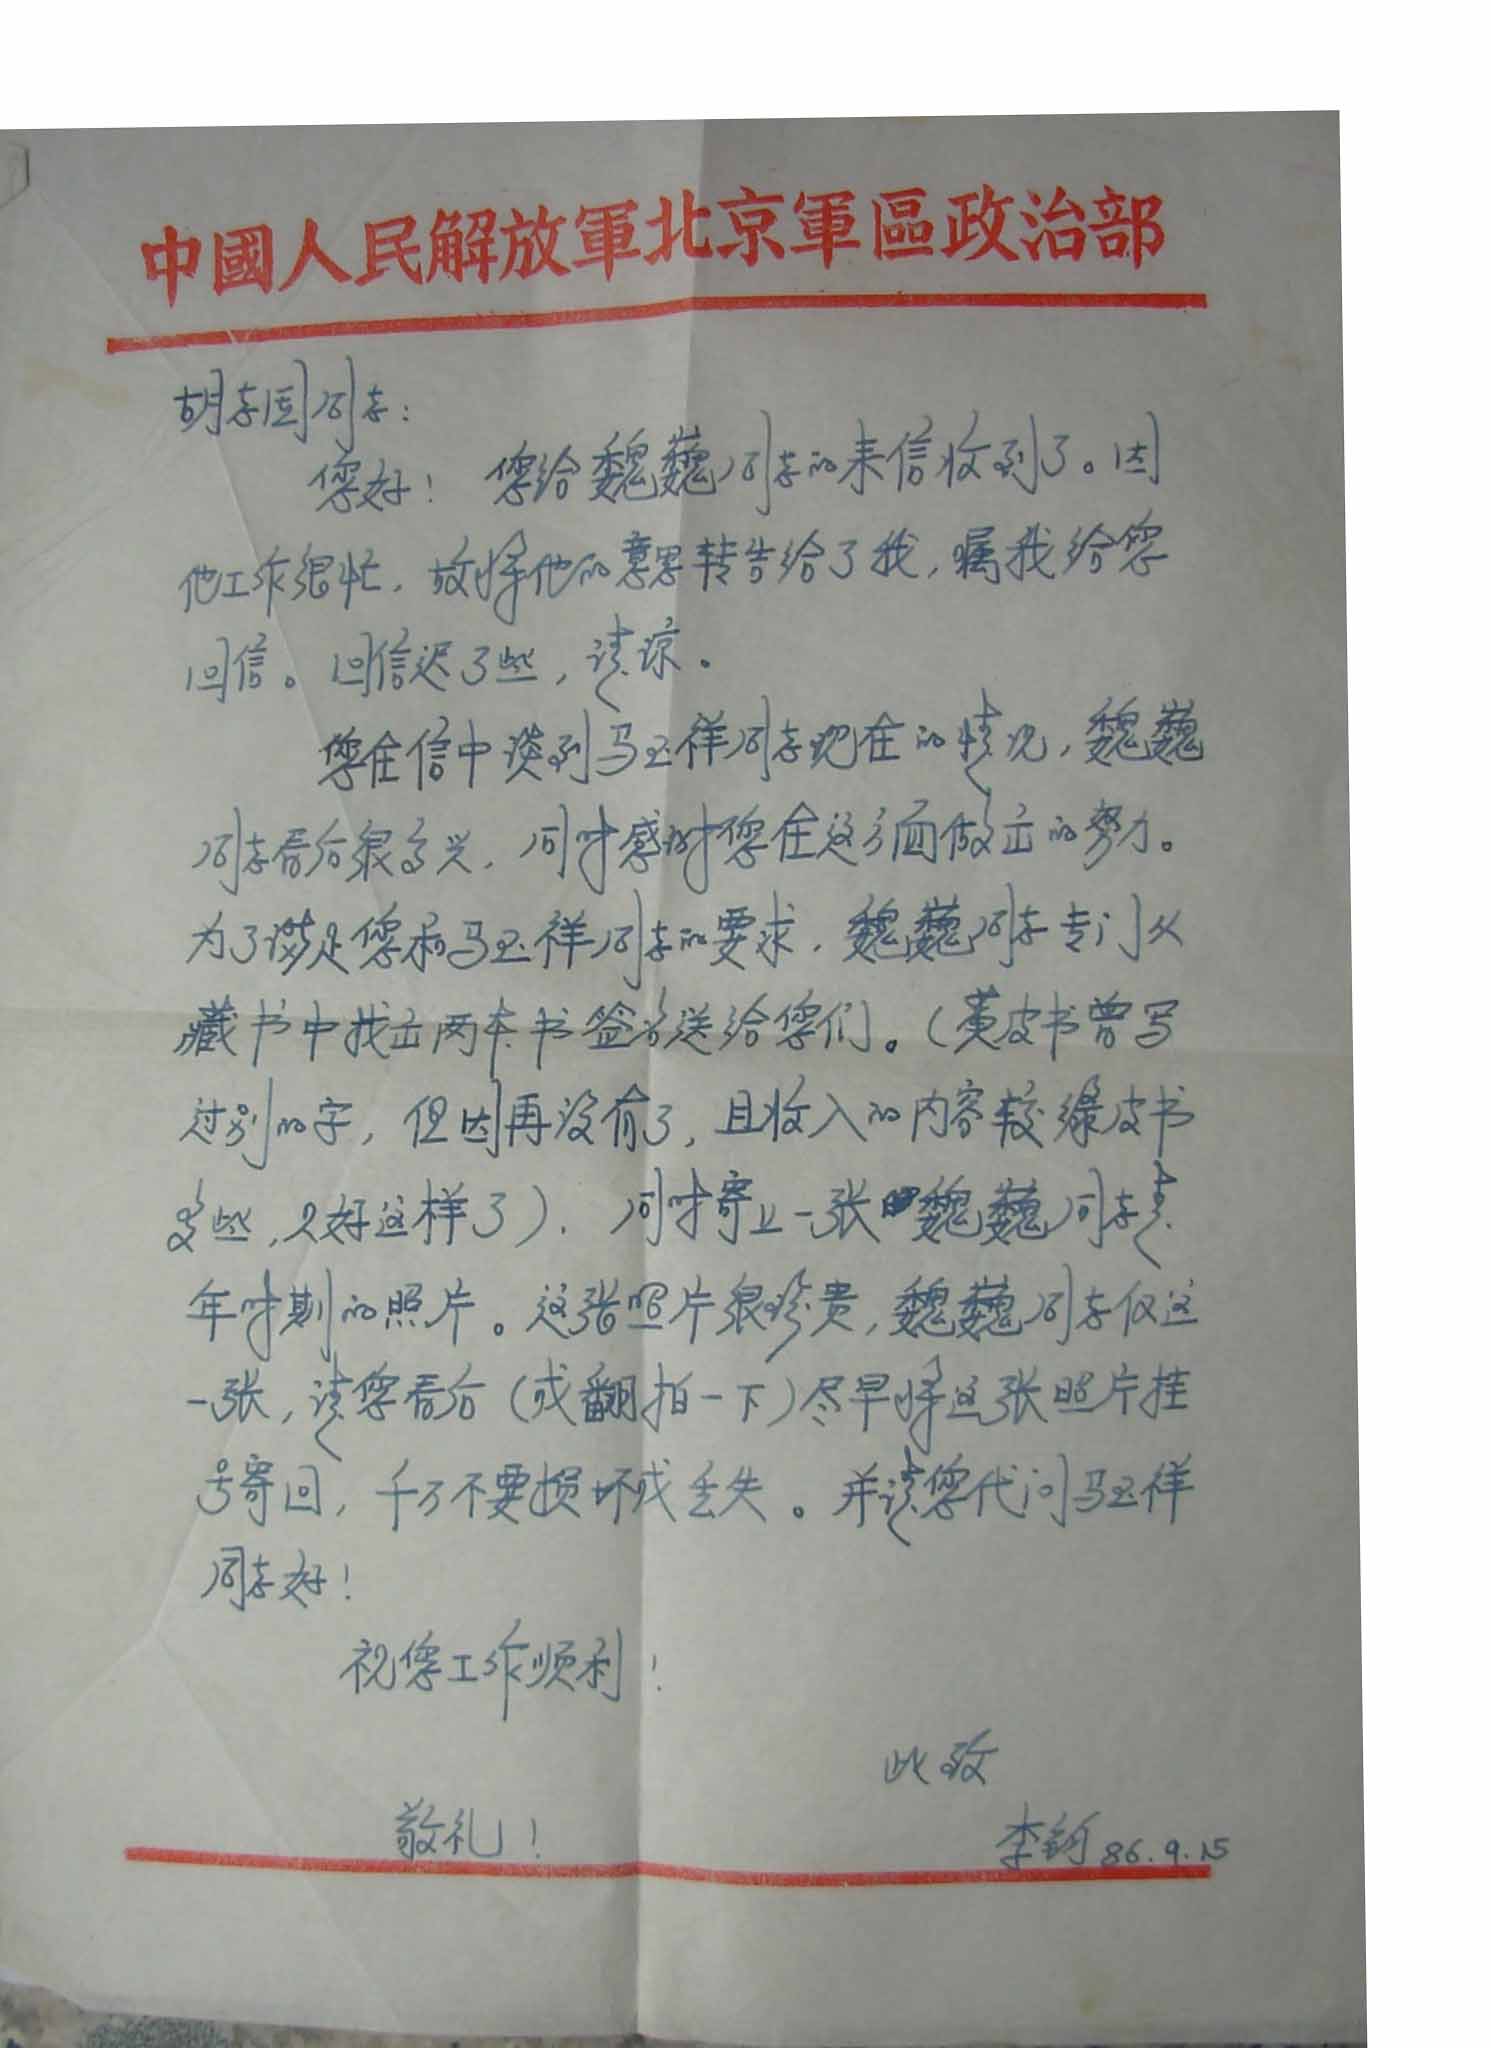 中國人民解放軍北京軍區政治部
胡志国同志：
您好！您给魏巍同志的来信收到了。因
他工作很忙，故将他的意思转告给了我，嘱我给您
回信。回信迟了些，请谅。
您在信中谈到马玉祥同志现在的情况，魏巍
同志看后很高兴，同时感谢您在这方面做出的努力。
为了满足您和马玉祥同志的要求，魏巍同志专门从
藏书中找出两本书签名送给您们。（黄皮书曾写
过别的字，但因再没有了，且收入的内容较绿皮书
多些，只好这样了）．同时寄上一张魏巍同志青
年时期的照片。这张照片很珍贵，魏巍同志仅这
一张，请您看后（或翻拍一下）尽早将这张照片挂
号寄回，千万不要损坏或丢失。并请您代问马玉祥
同志好！
祝您工作顺利！
此致
敬礼！
李 86.9.15